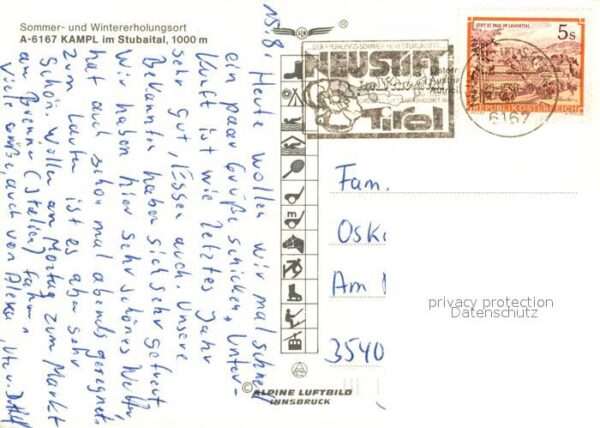 Sommer- und Wintererholungsort
A-6167 KAMPL im Stubaital, 1000 m
15.8. Heute wollen wir mal schnell
ein paar Grüße schicken. Unter-
kunft ist wie letztes Jahr
sehr gut, Essen auch. Unsere
Bekannten haben sich sehr gefreut
Wir haben hier sehr schönes Wetter
hat auch schon mal abends geregnet.
Zum Laufen ist es aber sehr
schön. Wollen am Montag zum Markt
am Brenner (Italien) fahren
Viele Grüße, auch von Alexa, Ute u. Detlef
NEUSTIFT
im Stubaital
Tirol
6167
STIFT ST. PAUL IM LAVANTTAL
5 S
REPUBLIK ÖSTERREICH
Fam.
Osk
Am
3540
privacy protection
Datenschutz
© ALPINE LUFTBILD
INNSBRUCK